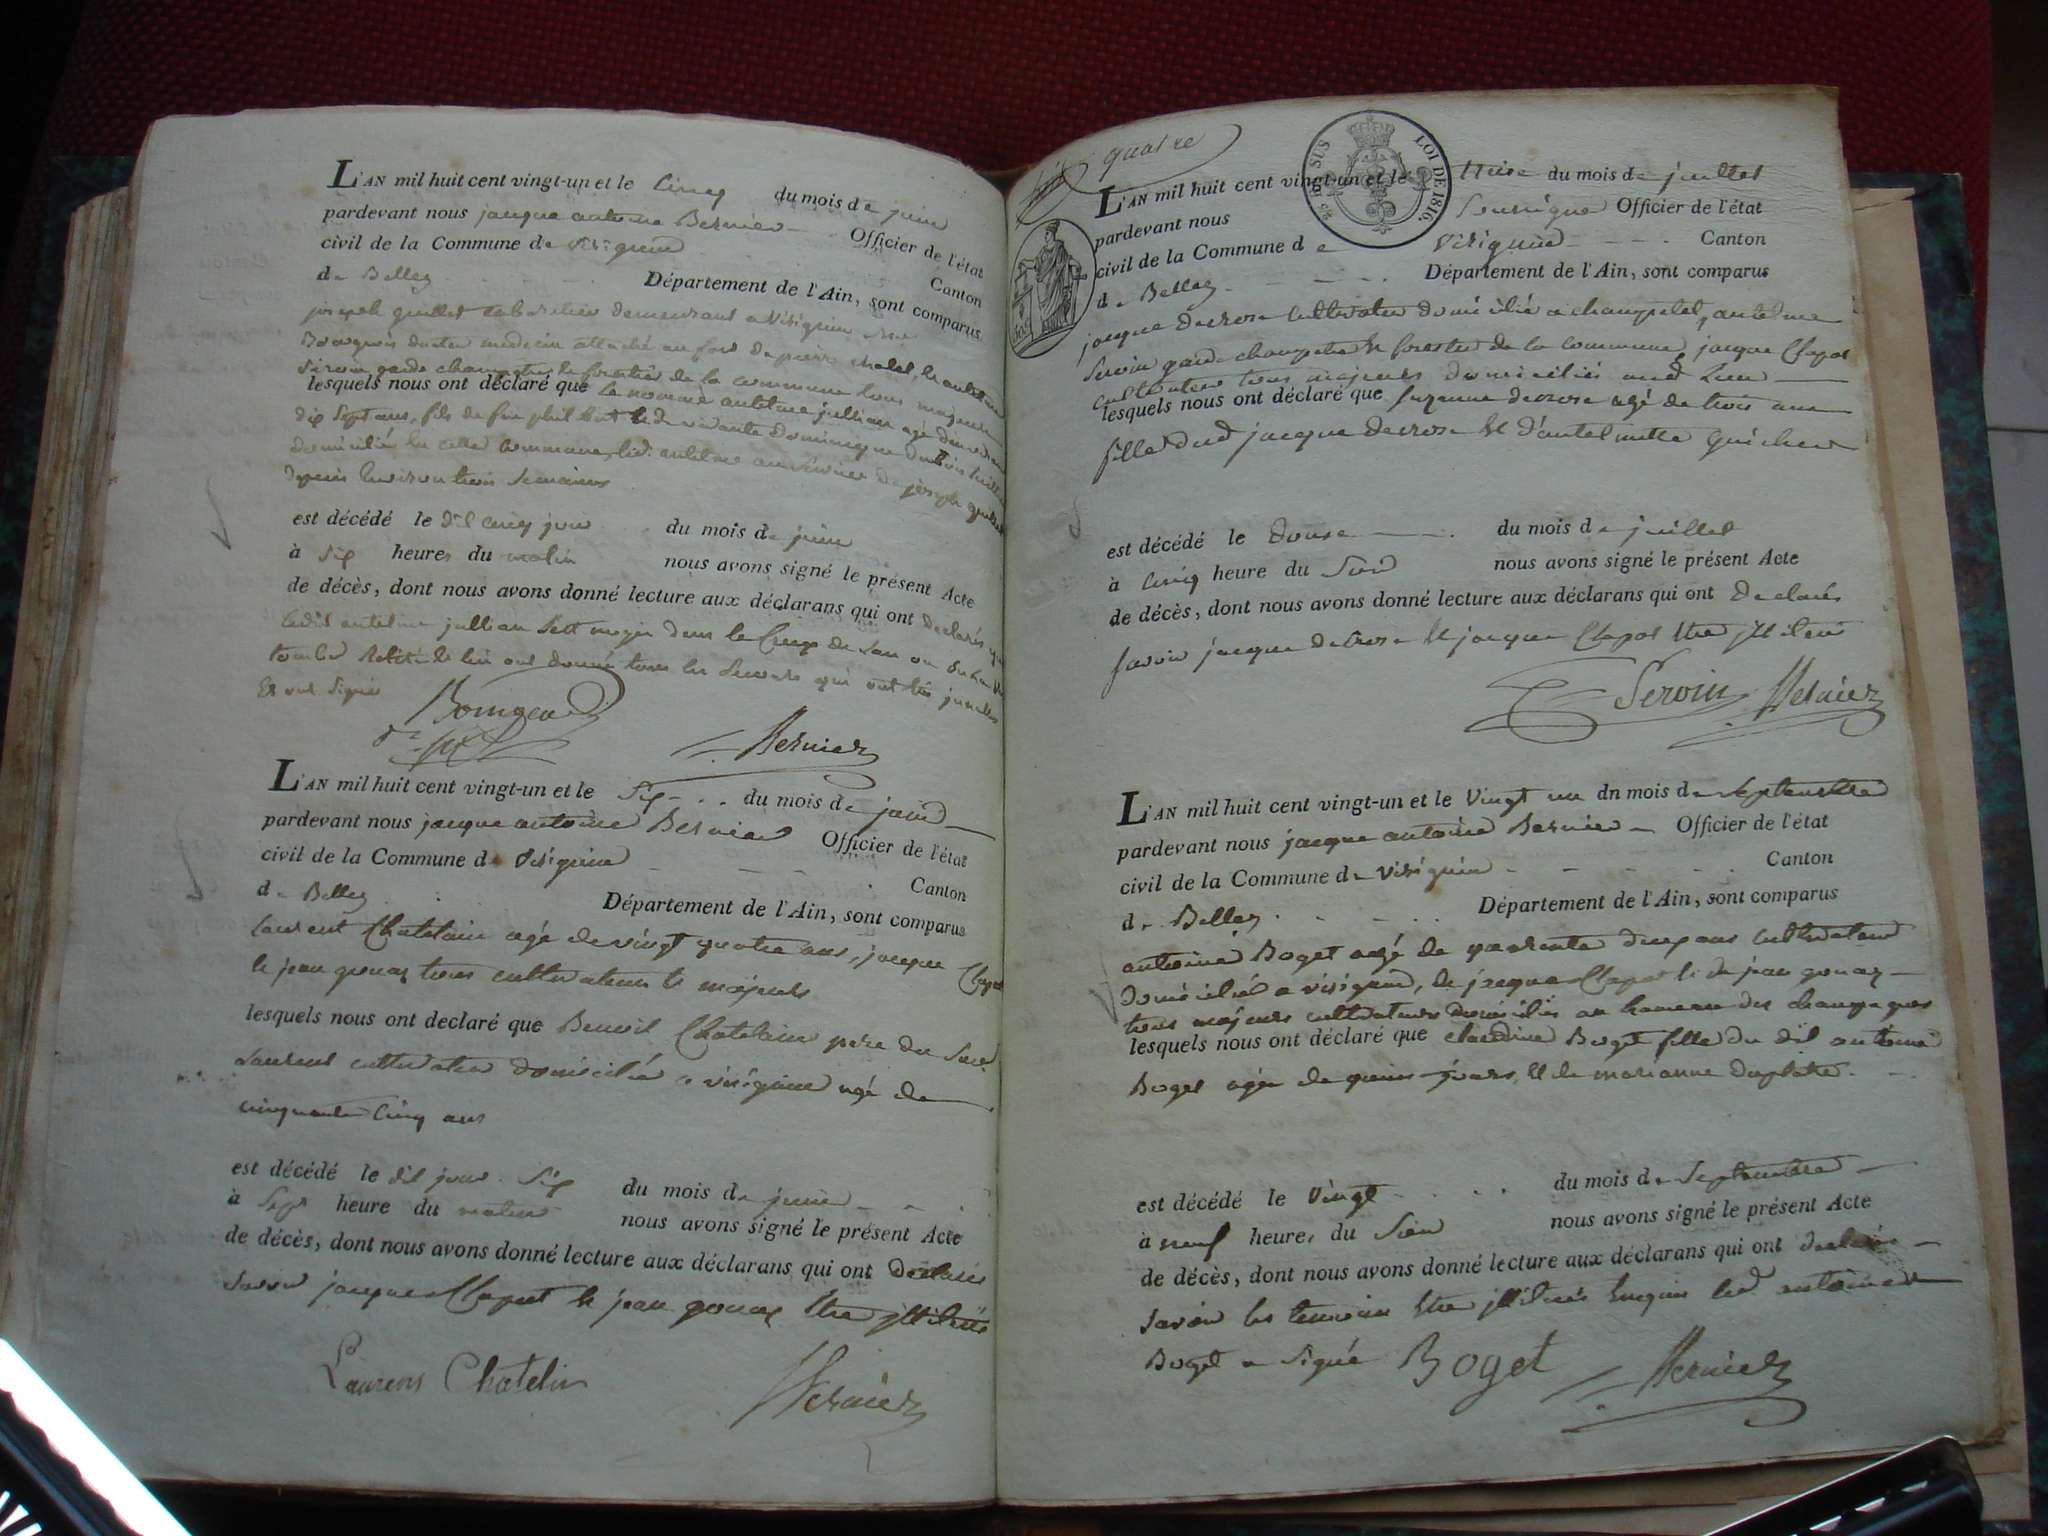 L'AN mil huit cent vingt-un et le cinq du mois de juin
pardevant nous jacque antoine Bernier Officier de l'état
civil de la Commune de virignin Canton
de Belley Département de l'Ain, sont comparus
joseph guillet cabaretier demeurant a virignin
Bourgeois docteur medecin attaché au fort de pierre chatel, et antelme
Servin garde champetre et forestier de la commune tous majeurs
lesquels nous ont déclaré que le nommé antelme jullian agé d'environ
dix sept ans, fils de feu philibert et de vivante Dominique
domicilié en cette commune, led. antelme au service de joseph guillet
depuis environ trois semaines
est décédé le dit cinq jour du mois de juin
à six heures du matin nous avons signé le présent Acte
de décès, dont nous avons donné lecture aux déclarans qui ont declarés que
ledit antelme jullian dans le de
tomber retiré et lui ont donné tous les secours qui ont été
et ont signé
Bernier
L'AN mil huit cent vingt-un et le six du mois de juin
pardevant nous jacque antoine Bernier Officier de l'état
civil de la Commune de virignin Canton
de Belley Département de l'Ain, sont comparus
Laurent Chatelain agé de vingt quatre ans, jacque Clapot
et jean gonay tous cultivateurs et majeurs
lesquels nous ont declaré que Benoit Chatelain pere du susd.
Laurent cultivateur domicilié a virignin agé de
cinquante cinq ans
est décédé le dit jour six du mois de juin
à sept heure du matin nous avons signé le présent Acte
de décès, dont nous avons donné lecture aux déclarans qui ont declarés
savoir jacque Clapot et jean gonay être illiteré
Laurens Chatelin Bernier
quatre
SUS LOI DE 1816.
L'AN mil huit cent vingt-un et le treise du mois de juillet
pardevant nous Soussigné Officier de l'état
civil de la Commune de virignin Canton
de Belley Département de l'Ain, sont comparus
jacque decrose cultivateur domicilié a champetel, antelme
Servin garde champetre et forestier de la commune, jacque Clapot
cultivateur tous majeurs domiciliés aud. lieu
lesquels nous ont déclaré que suzanne decrose agé de trois ans
fille dud jacque decrose et d'antelmette Guicher
est décédé le douse du mois de juillet
à cinq heure du soir nous avons signé le présent Acte
de décès, dont nous avons donné lecture aux déclarans qui ont declarés
savoir jacque decrose et jacque Clapot être illiteré
Servin Bernier
L'AN mil huit cent vingt-un et le vingt un dn mois de septembre
pardevant nous jacque antoine Bernier Officier de l'état
civil de la Commune de virignin Canton
de Belley Département de l'Ain, sont comparus
antoine Boget agé de quarante ans cultivateur
domicilié a virignin, de jacque Clapot et de jean gonay
tous majeurs cultivateurs domiciliés au hameau des champagnes
lesquels nous ont déclaré que claudine Boget fille du dit antoine
Boget agée de quinse jours, et de marianne duplatre
est décédé le vingt du mois de septembre
à neuf heures du soir nous avons signé le présent Acte
de décès, dont nous avons donné lecture aux déclarans qui ont declarés
savoir les temoins être illiterés led antoine
Boget a signé Boget Bernier